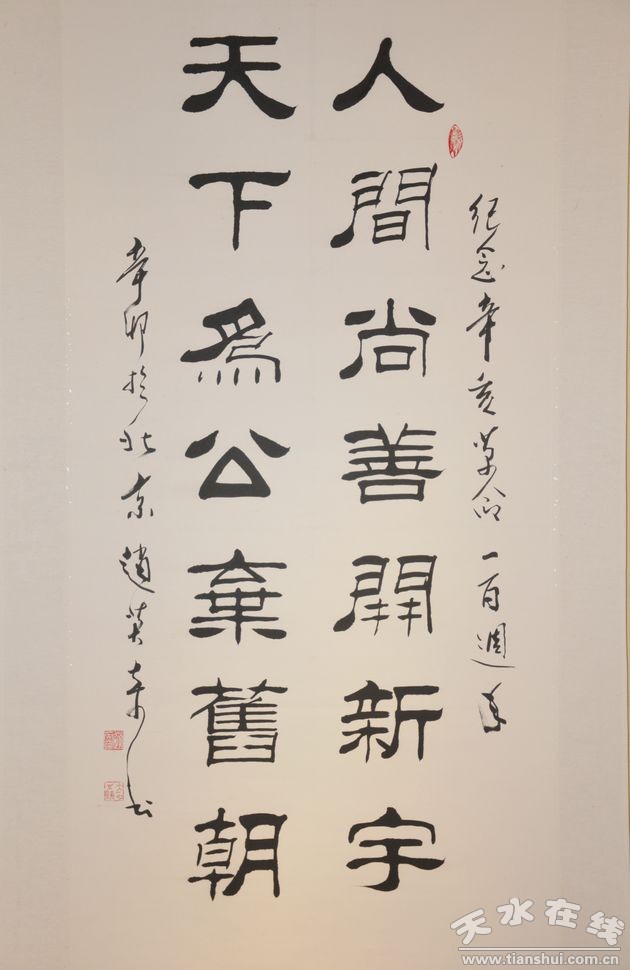 紀念辛亥革命一百週年
人間尚善開新宇
天下為公棄舊朝
辛卯於北京趙英奇书
天水在线
www.tianshui.com.cn